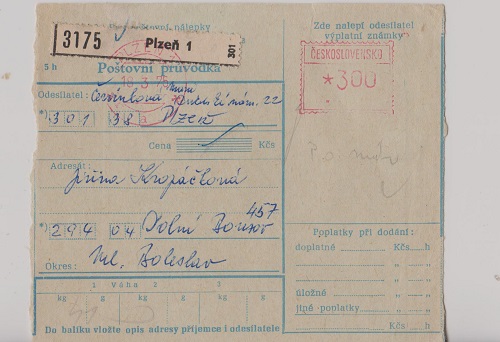 3175 Plzeň 1 301
Zde nalepí odesílatel
výplatní známky
ČESKOSLOVENSKO
*300
5 h Poštovní průvodka
Odesílatel: Červinková nám. 22
*) 301 38 Plzeň
Cena Kčs
Adresát:
Jiřina Kropáčková
*) 294 04 Dolní Bousov 457
Okres: Ml. Boleslav
Poplatky při dodání:
doplatné Kčs h
„ „
„ „
úložné „ „
jiné poplatky „ „
Kčs h
1 Váha 2
kg g kg g kg g
Do balíku vložte opis adresy příjemce i odesílatele